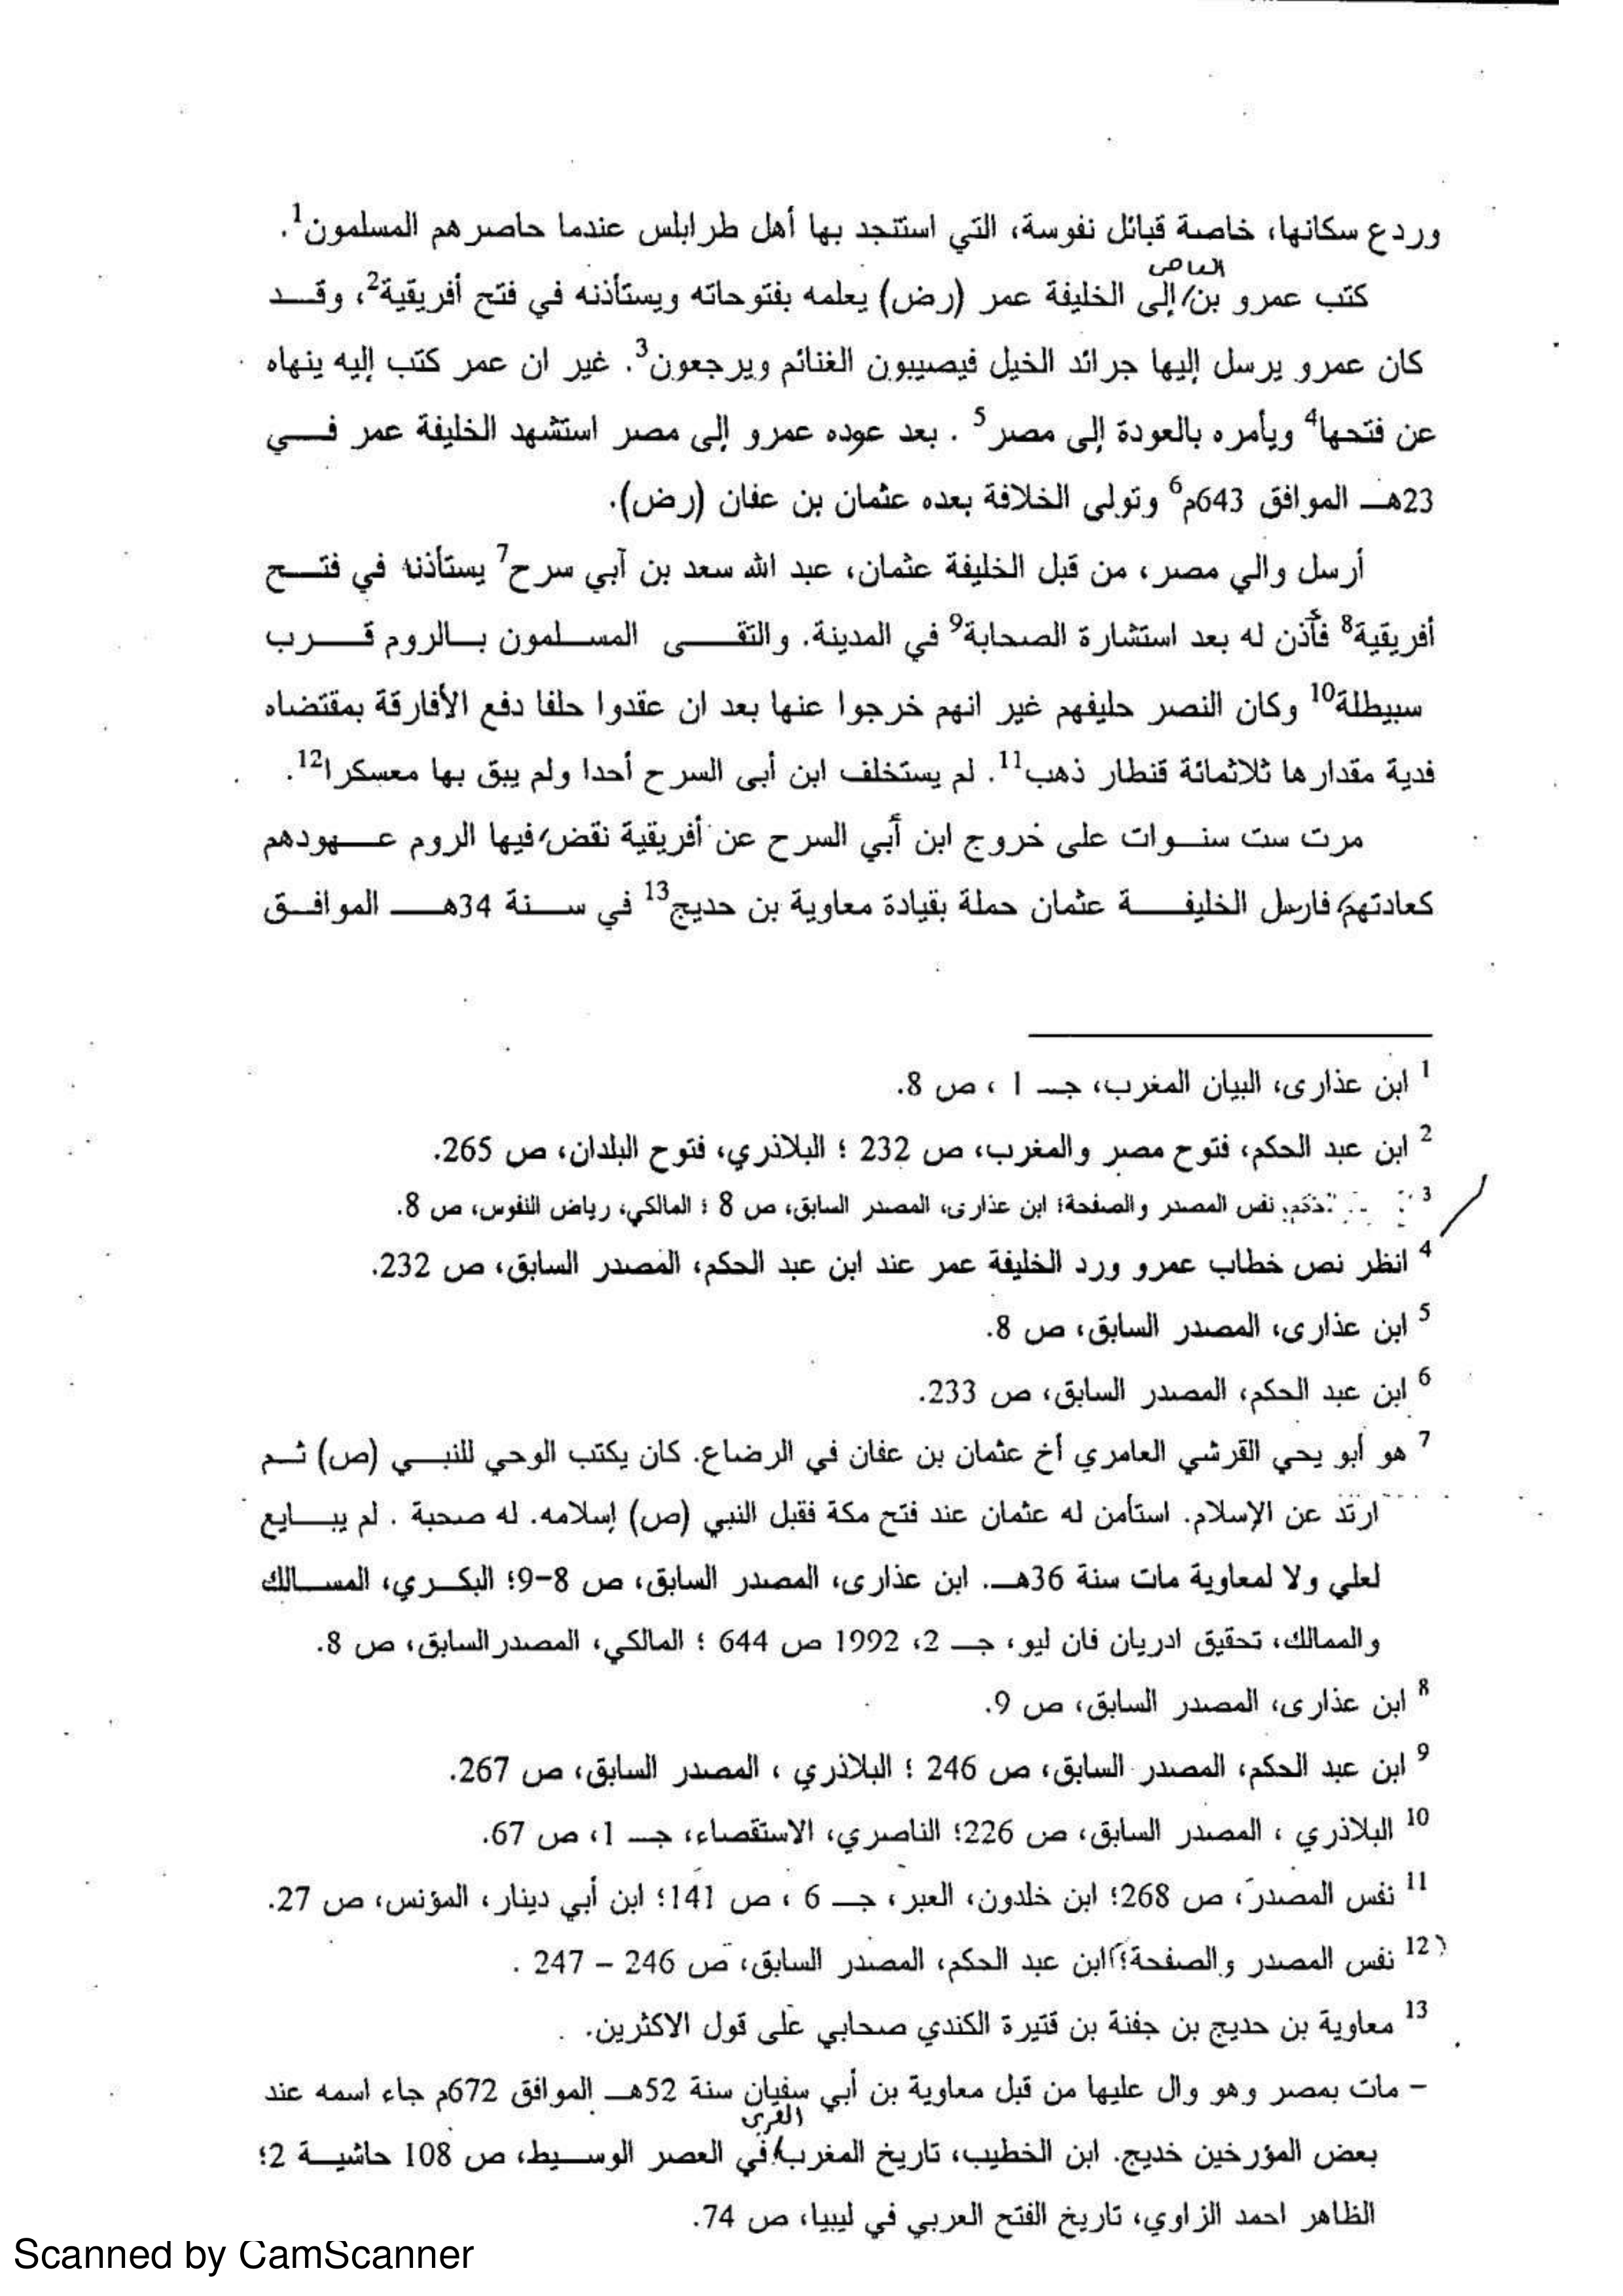 وردع سكانها، خاصة قبائل نفوسة، التي استنجد بها أهل طرابلس عندما حاصرهم المسلمون1.
العاص
كتب عمرو بن/إلى الخليفة عمر (رض) يعلمه بفتوحاته ويستأذنه في فتح أفريقية2، وقد
كان عمرو يرسل إليها جرائد الخيل فيصيبون الغنائم ويرجعون3. غير ان عمر كتب إليه ينهاه
عن فتحها4 ويأمره بالعودة إلى مصر5 . بعد عوده عمرو إلى مصر استشهد الخليفة عمر في
23هـ الموافق 643م6 وتولى الخلافة بعده عثمان بن عفان (رض).
أرسل والي مصر، من قبل الخليفة عثمان، عبد الله سعد بن آبي سرح7 يستأذنه في فتح
أفريقية8 فأذن له بعد استشارة الصحابة9 في المدينة. والتقى المسلمون بالروم قرب
سبيطلة10 وكان النصر حليفهم غير انهم خرجوا عنها بعد ان عقدوا حلفا دفع الأفارقة بمقتضاه
فدية مقدارها ثلاثمائة قنطار ذهب11. لم يستخلف ابن أبى السرح أحدا ولم يبق بها معسكرا12.
مرت ست سنوات على خروج ابن أبي السرح عن أفريقية نقض فيها الروم عهودهم
كعادتهم، فارسل الخليفة عثمان حملة بقيادة معاوية بن حديج13 في سنة 34هـ الموافق
1 ابن عذارى، البيان المغرب، جـ 1 ، ص 8.
2 ابن عبد الحكم، فتوح مصر والمغرب، ص 232 ؛ البلاذري، فتوح البلدان، ص 265.
3 نفس المصدر والصفحة؛ ابن عذارى، المصدر السابق، ص 8 ؛ المالكي، رياض النفوس، ص 8.
4 انظر نص خطاب عمرو ورد الخليفة عمر عند ابن عبد الحكم، المصدر السابق، ص 232.
5 ابن عذارى، المصدر السابق، ص 8.
6 ابن عبد الحكم، المصدر السابق، ص 233.
7 هو أبو يحي القرشي العامري أخ عثمان بن عفان في الرضاع. كان يكتب الوحي للنبي (ص) ثم
ارتد عن الإسلام. استأمن له عثمان عند فتح مكة فقبل النبي (ص) إسلامه. له صحبة . لم يبايع
لعلي ولا لمعاوية مات سنة 36هـ. ابن عذارى، المصدر السابق، ص 8-9؛ البكري، المسالك
والممالك، تحقيق ادريان فان ليو، جـ 2، 1992 ص 644 ؛ المالكي، المصدر السابق، ص 8.
8 ابن عذارى، المصدر السابق، ص 9.
9 ابن عبد الحكم، المصدر السابق، ص 246 ؛ البلاذري ، المصدر السابق، ص 267.
10 البلاذري ، المصدر السابق، ص 226؛ الناصري، الاستقصاء، جـ 1، ص 67.
11 نفس المصدر، ص 268؛ ابن خلدون، العبر، جـ 6 ، ص 141؛ ابن أبي دينار، المؤنس، ص 27.
12 نفس المصدر والصفحة؛ ابن عبد الحكم، المصدر السابق، ص 246 – 247 .
13 معاوية بن حديج بن جفنة بن قتيرة الكندي صحابي على قول الاكثرين.
– مات بمصر وهو وال عليها من قبل معاوية بن أبي سفيان سنة 52هـ الموافق 672م جاء اسمه عند
بعض المؤرخين خديج. ابن الخطيب، تاريخ المغرب/في العصر الوسيط، ص 108 حاشية 2؛
الظاهر احمد الزاوي، تاريخ الفتح العربي في ليبيا، ص 74.
Scanned by CamScanner